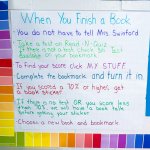 When You Finish a Book
You do not have to tell Mrs. Swinford
Take a test on Read-N-Quiz
If there is not a test check 3rd Test
Available or your bookmark
To find your score click MY STUFF
Complete the bookmark and turn it in.
If you scored a 70% or higher, get
a book sticker
If there is no test OR you score less
than 70% we will have a book talk
before getting your sticker
Choose a new book and bookmark